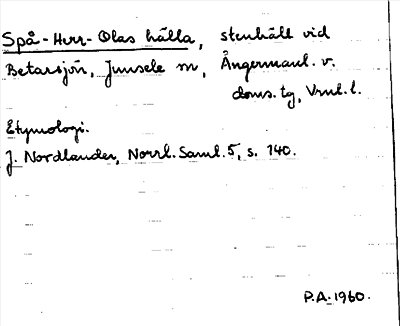 Spå-Herr-Olas hälla, stenhäll vid
Betarsjön, Junsele sn, Ångermanl. v.
doms. tg, Vrnl. l.
Etymologi.
J. Nordlander, Norrl. Saml. 5, s. 140.
P.A. 1960.